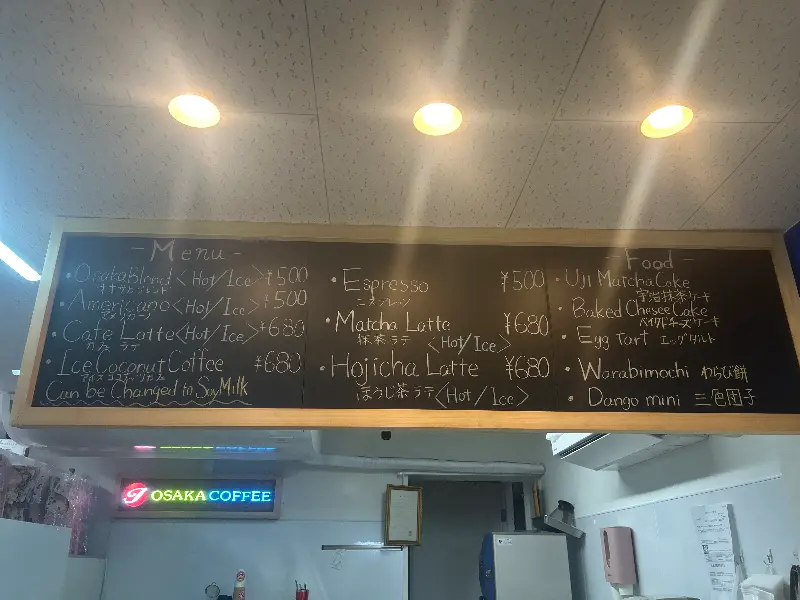 - Menu -
• Osakablend <Hot/Ice> ¥500
オオサカブレンド
• Americano <Hot/Ice> ¥500
アメリカーノ
• Cafe Latte <Hot/Ice> ¥680
カフェラテ
• Ice Coconut Coffee ¥680
アイスココナッツカフェ
Can be Changed to Soy Milk
• Espresso ¥500
エスプレッソ
• Matcha Latte ¥680
抹茶ラテ <Hot/Ice>
• Hojicha Latte ¥680
ほうじ茶ラテ <Hot/Ice>
- Food -
• Uji Matcha Cake
宇治抹茶ケーキ
• Baked Chesee Cake
ベイクドチーズケーキ
• Egg Tart エッグタルト
• Warabimochi わらび餅
• Dango mini 三色団子
OSAKA COFFEE